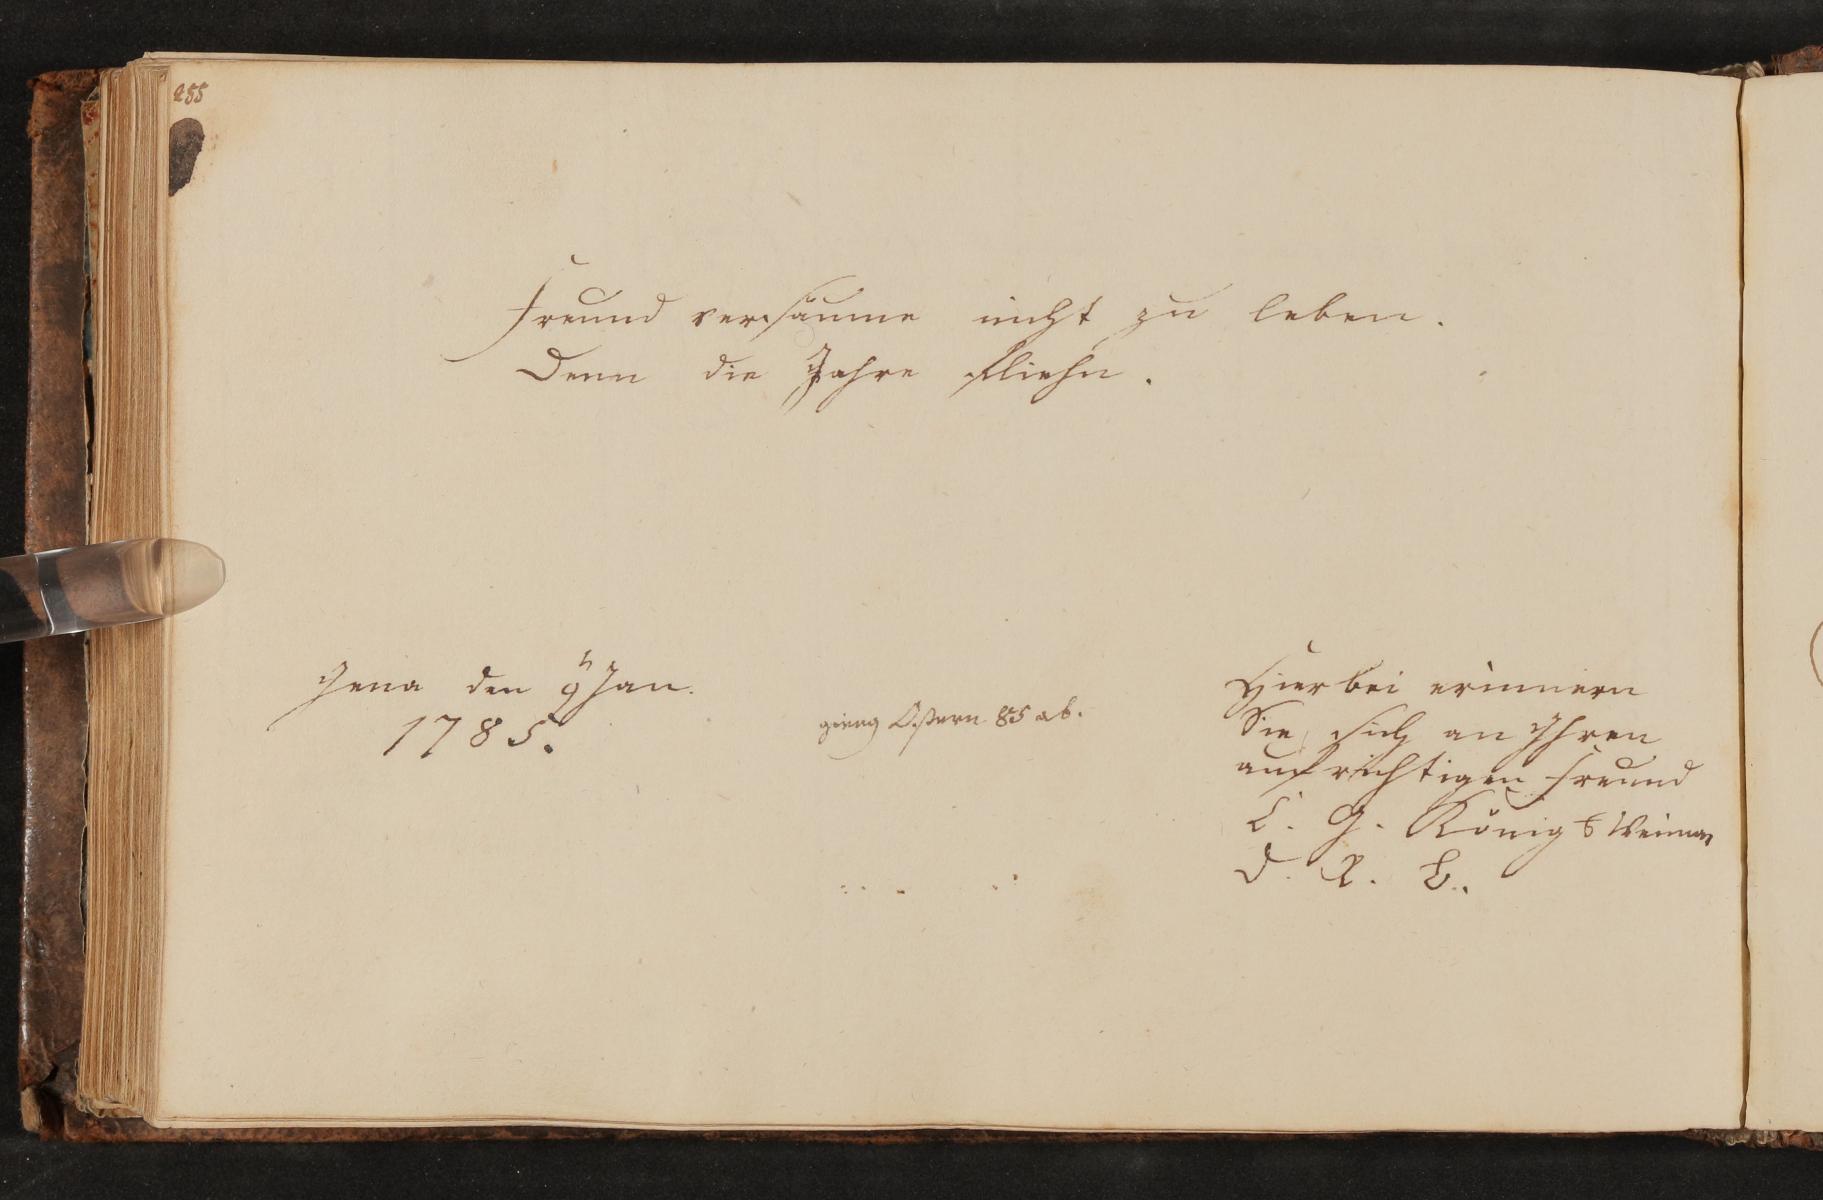 255
Freund versäume nicht zu leben.
Denn die Jahre fliehn.
Jena den 9 Jan.
1785.
gieng Ostern 85 ab.
Hierbei erinnern
Sie sich an Ihren
aufrichtigen Freund
C. G. König Weimar
d. R. B.